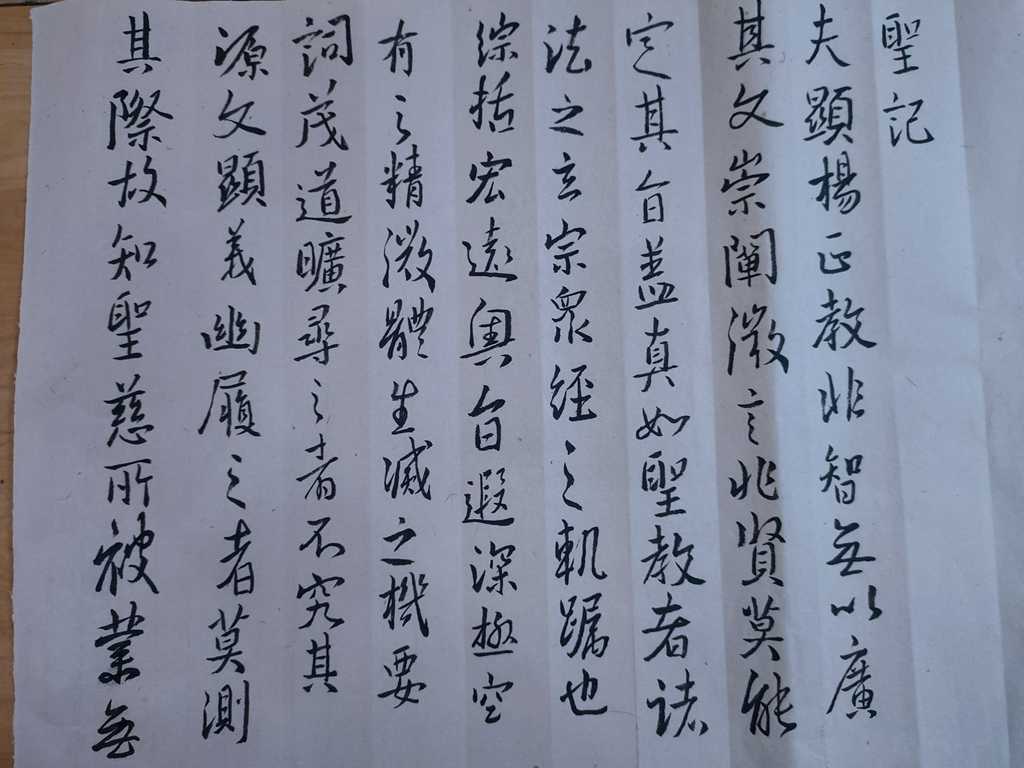 聖記
夫顯楊正教非智無以廣
其文崇闡微言非賢莫能
定其旨蓋真如聖教者諸
法之玄宗眾經之軌躅也
綜括宏遠奧旨遐深極空
有之精微體生滅之機要
詞茂道曠尋之者不究其
源文顯義幽履之者莫測
其際故知聖慈所被業無